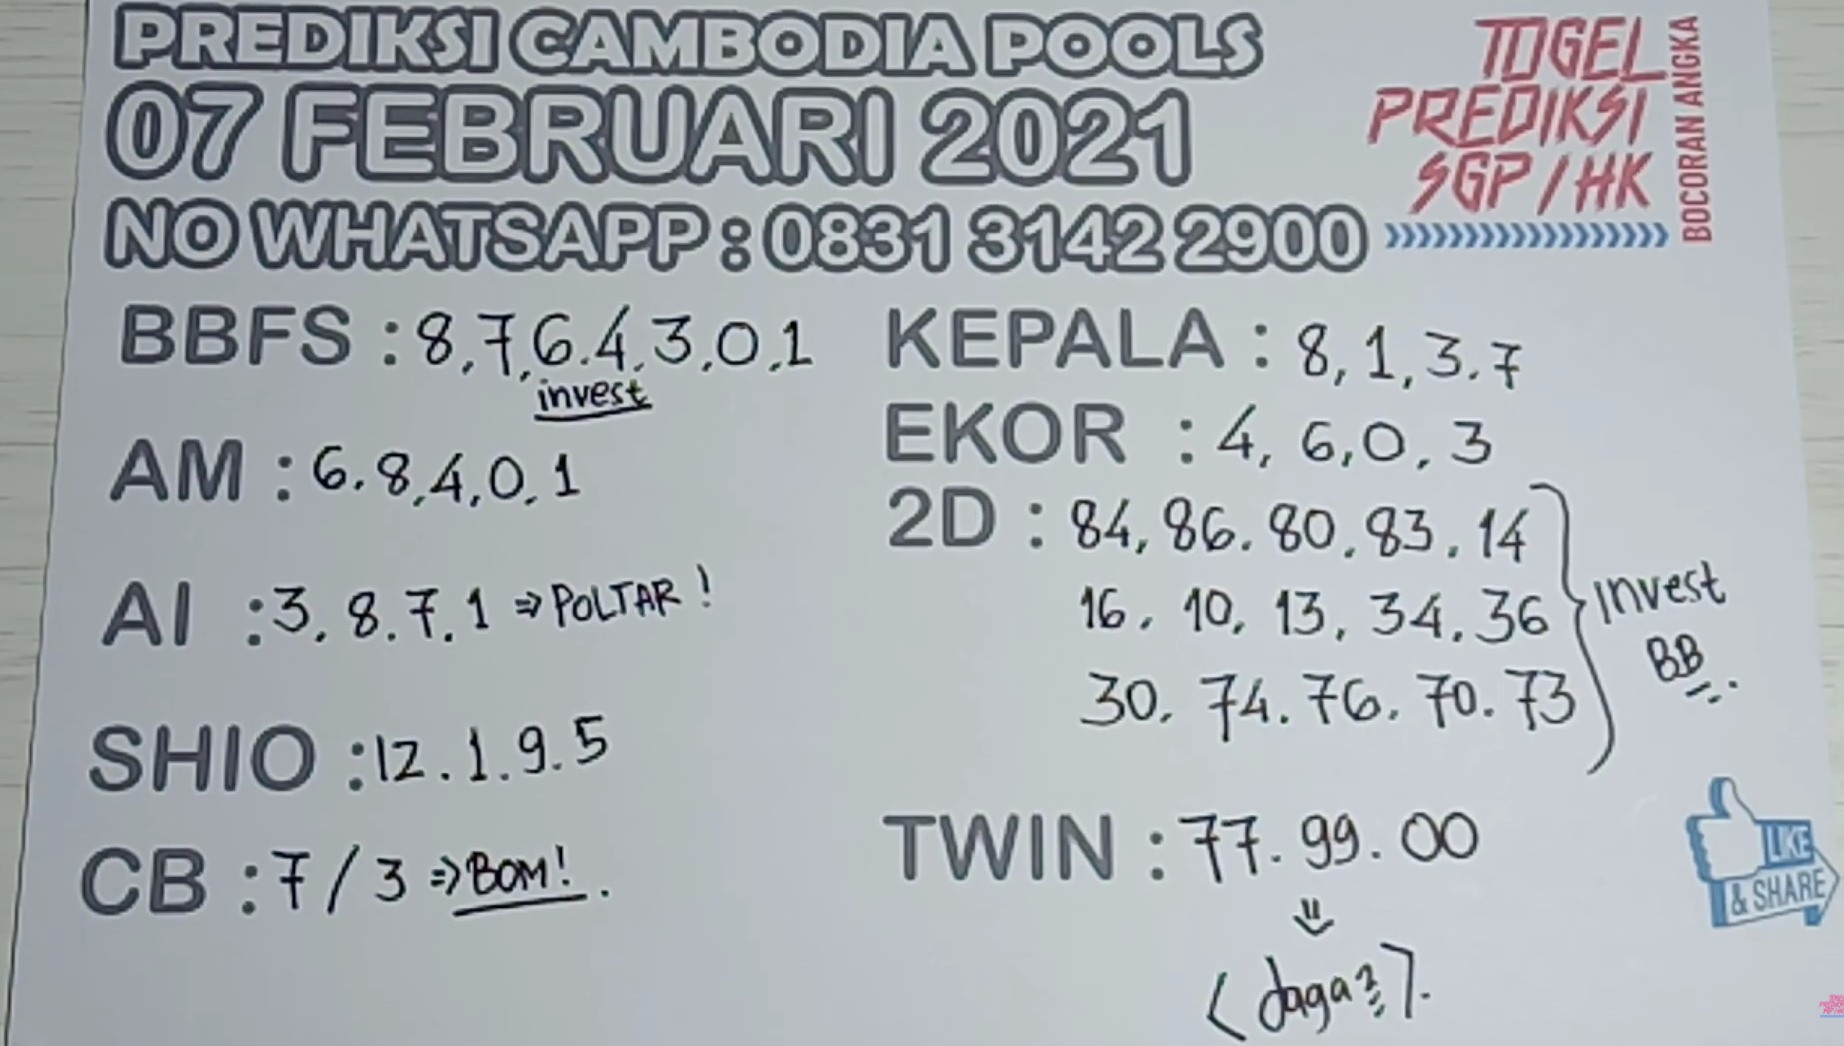 PREDIKSI CAMBODIA POOLS
07 FEBRUARI 2021
NO WHATSAPP : 0831 3142 2900
TOGEL
PREDIKSI
SGP / HK
BOCORAN ANGKA
BBFS : 8,7,6.4,3,0,1
invest
AM : 6.8,4,0,1
AI : 3.8.7.1 => POLTAR !
SHIO : 12.1.9.5
CB : 7/3 => BOM! .
KEPALA : 8,1,3.7
EKOR : 4, 6,0,3
2D : 84,86.80.83.14
16. 10, 13, 34.36
30. 74.76.70.73
Invest
BB
TWIN : 77.99.00
LIKE
& SHARE